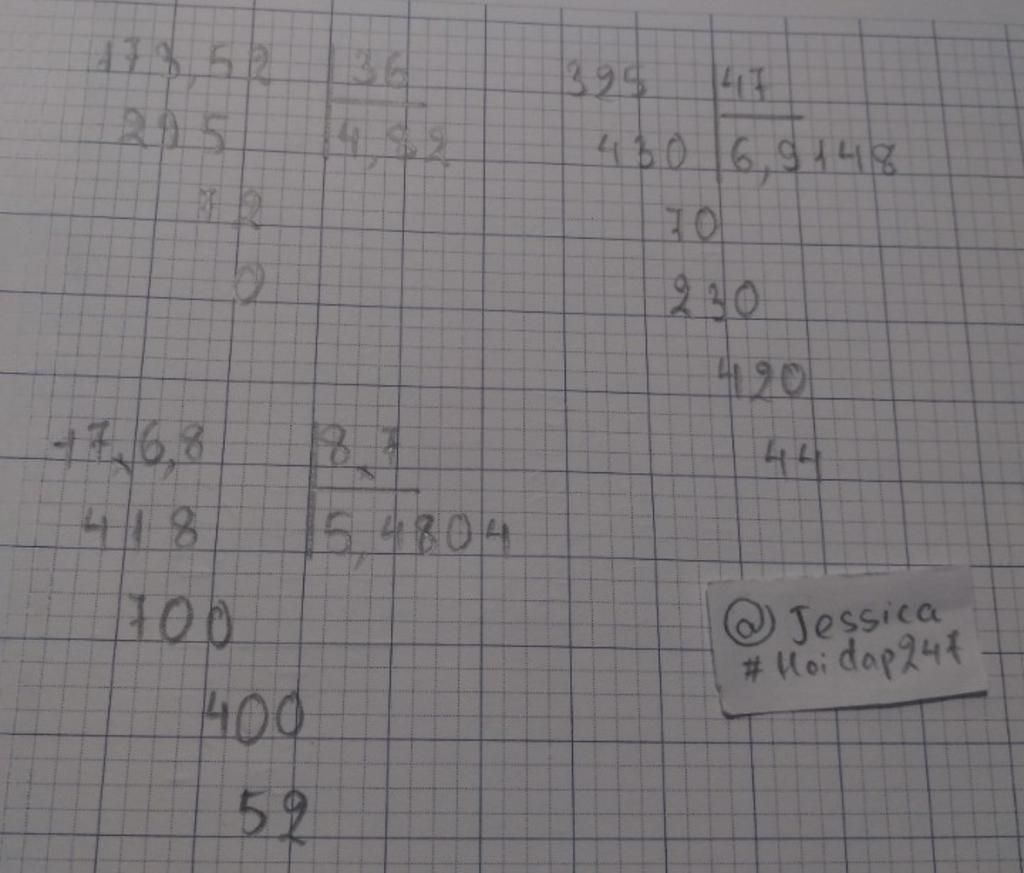 173,52 36
295 4,82
72
0
325 47
430 6,9148
70
230
420
44
47,6,8 8,7
418 5,4804
700
400
52
@Jessica
#Hoidap247